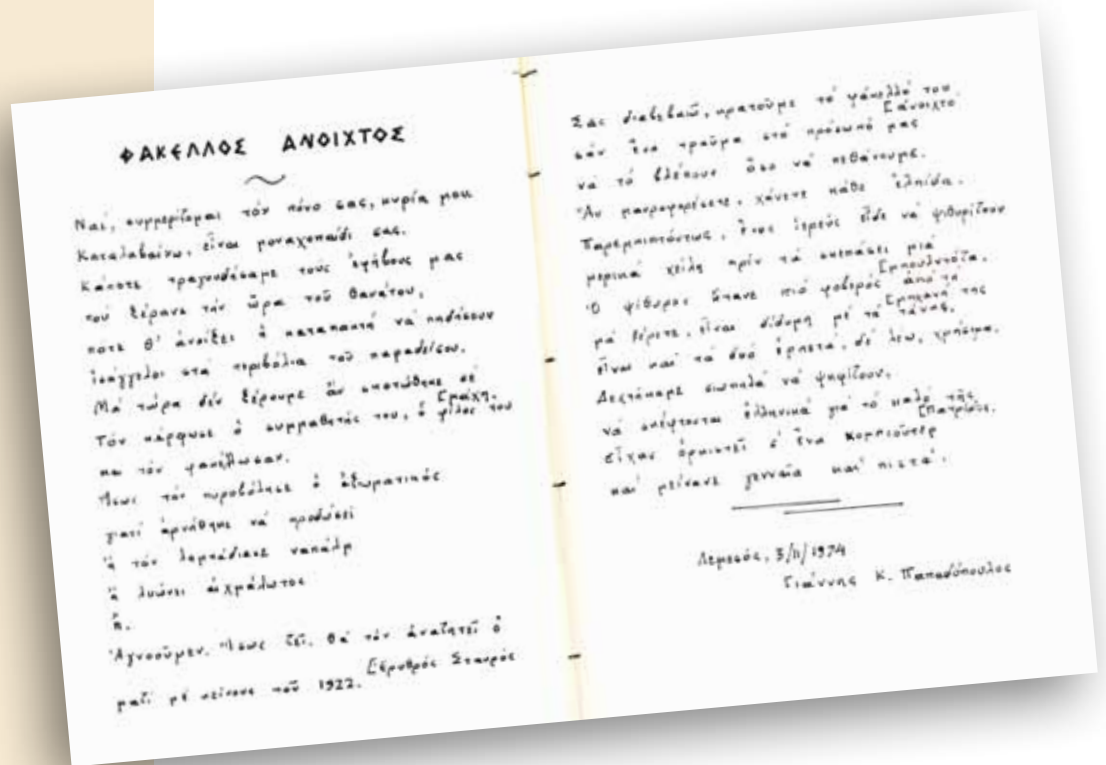 ΦΑΚΕΛΛΟΣ ΑΝΟΙΧΤΟΣ
Ναί, συμμερίζομαι τόν πόνο σας, κυρία μου
Καταλαβαίνω, εἶναι μοναχοπαίδι σας.
Κάποτε τραγουδούσαμε τούς ἐφήβους μας
πού ξέρανε τήν ὥρα τοῦ θανάτου,
πότε θ' ἀνοίξει ἡ καταπαχτή νά πηδήσουν
ἰσάγγελοι στά περιβόλια τοῦ παραδείσου.
Μά τώρα δέν ξέρουμε ἄν σκοτώθηκε σέ
[μάχη.
Τόν κάρφωσε ὁ συμμαθητής του, ὁ φίλος του
κα τόν φανέλωσαν.
Ἴσως τόν πυροβόλησε ὁ ἀξιωματικός
γιατί ἀρνήθηκε νά προδώσει
ἤ τόν λαμπάδιασε ναπάλμ
ἤ λυώνει αἰχμάλωτος
ἤ.
Ἀγνοοῦμεν. Ἴσως ζεῖ. Θά τόν ἀναζητεῖ ὁ
[Ἐρυθρός Σταυρός
μαζί μέ κείνους τοῦ 1922.
Σᾶς διαβεβαιῶ, κρατοῦμε τό φάκελλό του
[ἀνοιχτό
σάν ἕνα τραῦμα στό πρόσωπό μας
νά τό βλέπουν ὅσο νά πεθάνουμε.
Ἄν μαυροφορέσετε, χάνετε κάθε ἐλπίδα.
Παρεμπιπτόντως, ἕνας ἱερεύς εἶδε νά ψιθυρίζουν
μερικά χείλη πρίν τά σκεπάσει μιά
[μπουλντόζα.
Ὁ ψίθυρος ἤτανε πιό φοβερός ἀπό τή
[μηχανή της
μά ξέρετε, εἶναι δίδυμη μέ τά τάνκς,
εἶναι καί τά δυό ἑρπετά, δέ λέω, χρήσιμα.
Δεχτήκαμε σιωπηλά νά ψηφίζουν,
νά σκέφτονται ἑλληνικά γιά τό καλό τῆς
[Πατρίδος.
εἶχαν ὁρκιστεῖ σ' ἕνα κομπιοῦτερ
καί μείνανε γενναῖα καί πιστά.
Λεμεσός, 3/11/1974
Γιάννης Κ. Παπαδόπουλος